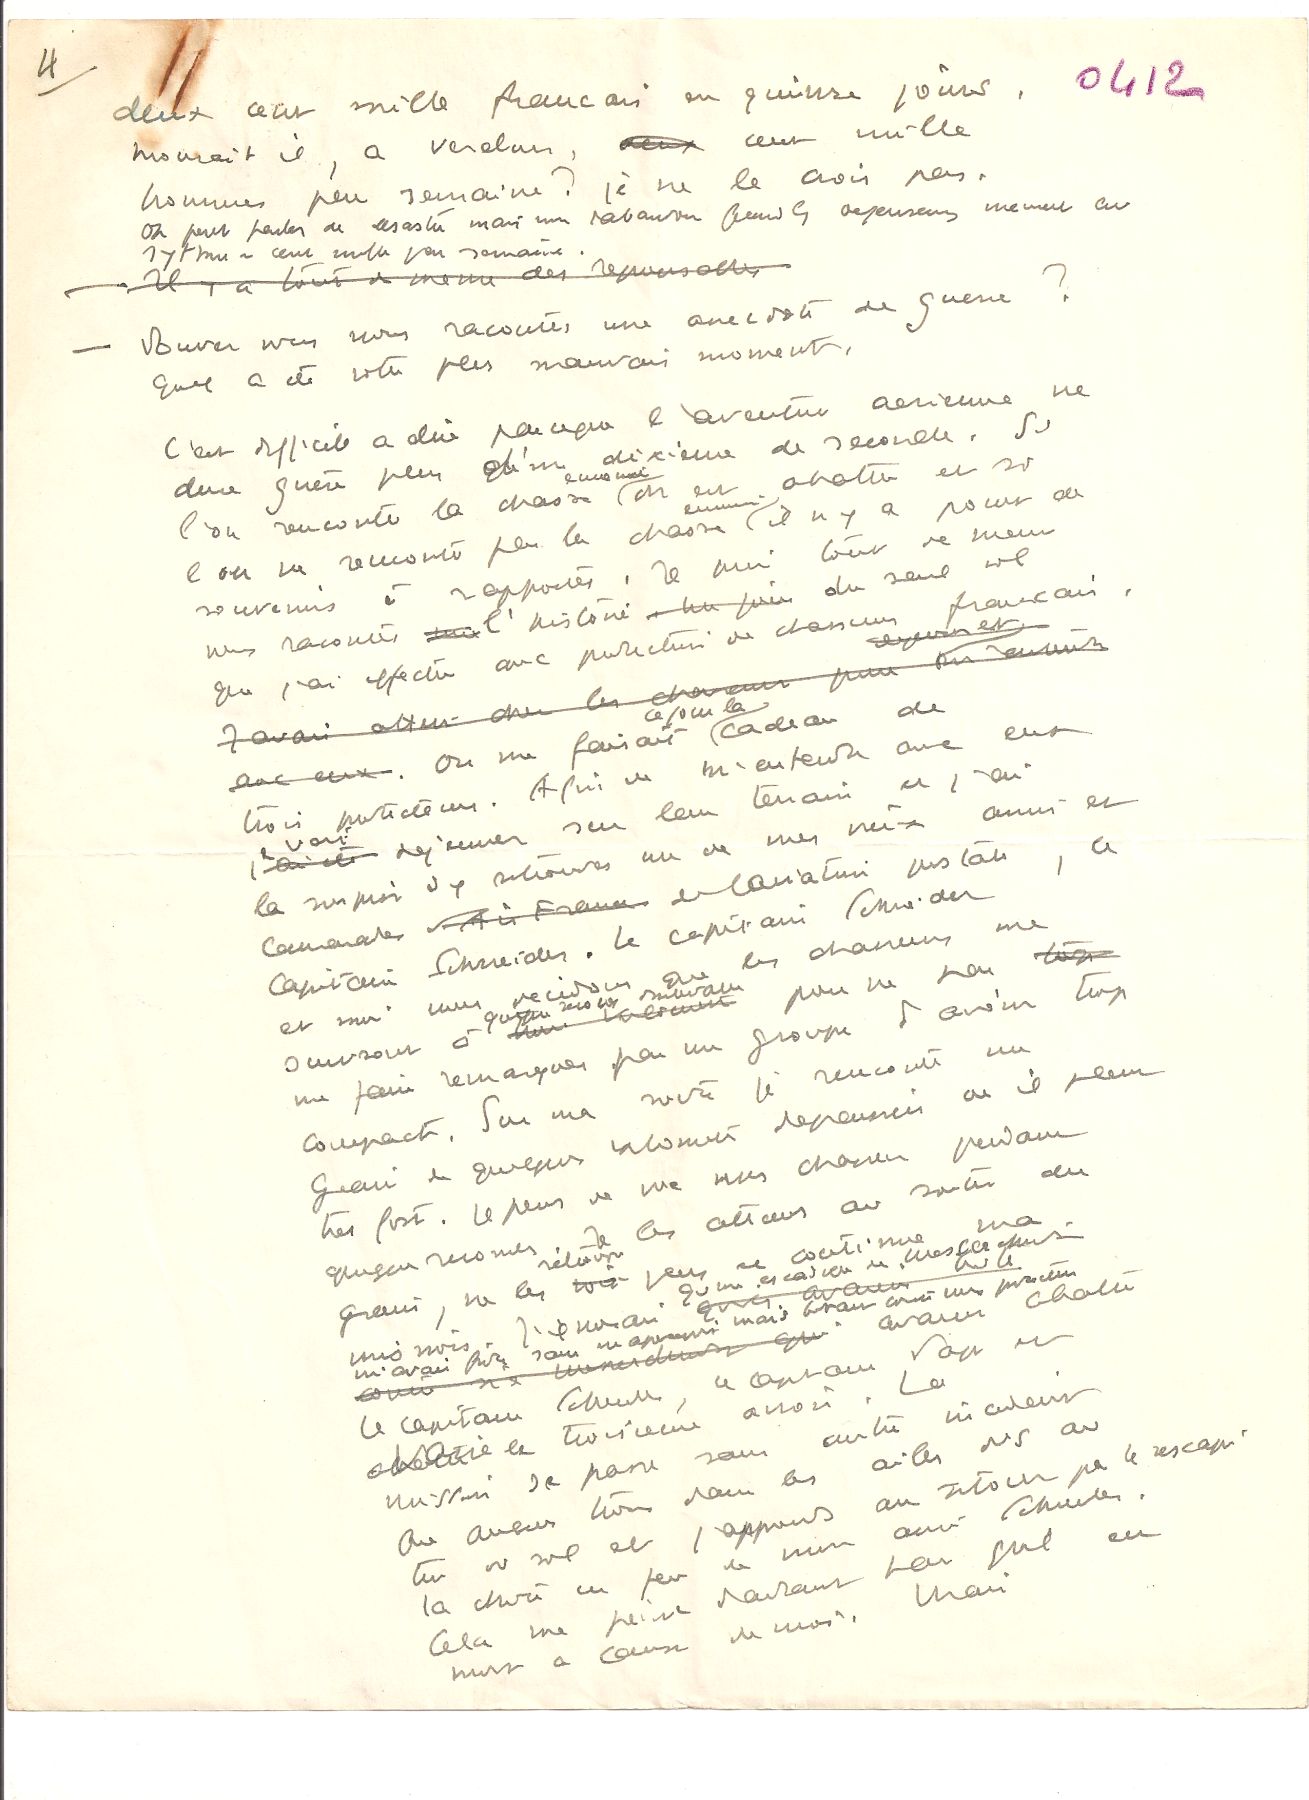 4
0412
deux cent mille francais en quinze jours.
mourait il, a Verdun, deux cent mille
hommes par semaine? je ne le crois pas.
on peut parler de desastre mais non d'abandon quand les defenseurs meurent au
rythme de cent mille par semaine.
— Il y a tout de meme des responsables
— Pouvez vous nous raconter une anecdote de guerre?
Quel a été votre plus mauvais moment.
C'est difficile a dire parceque l'aventure aerienne ne
dure guère plus qu'un dixieme de seconde. Si
l'on rencontre la chasse ennemie on est abattu et si
l'on ne rencontre pas la chasse ennemie il n'y a point de
souvenirs à rapporter. Je puis tout de meme
vous raconter l'histoire du seul vol
que j'ai effectué avec protection de chasseurs francais.
J'avais atterri chez les chasseurs pour
avec eux. On me faisait ce jour la cadeau de
trois protecteurs. Afin de m'entendre avec eux
je vais dejeuner sur leur terrain et j'ai
la surprise d'y retrouver un de mes vieux amis et
camarades Air France de l'aviation postale, le
capitaine Schneider. Le capitaine Schneider
et moi nous decidons que les chasseurs me
suivront à quelque distance pour ne pas trop
me faire remarquer par un groupe d'avions trop
compact. Sur ma route je rencontre un
grain de quelques kilometres d'epaisseur ou il pleut
tres fort. Je perds de vue mes chasseurs pendant
quelques secondes. Je les attends au sortir du
grain, ne les retrouve pas et continue ma
mission. J'ignorais qu'une escadre de Messerschmitt
m'avait suivi sans m'apercevoir mais tombant sur mes protecteurs
avaient abattu
le capitaine Schneider, le capitaine et
le troisieme aussi. La
mission se passe sans autre incident
que quelques trous dans les ailes dus au
tir du sol et j'apprends au retour par le rescapé
la chute en feu de mon ami Schneider.
Cela me peine d'autant plus qu'il est
mort a cause de moi. Mais